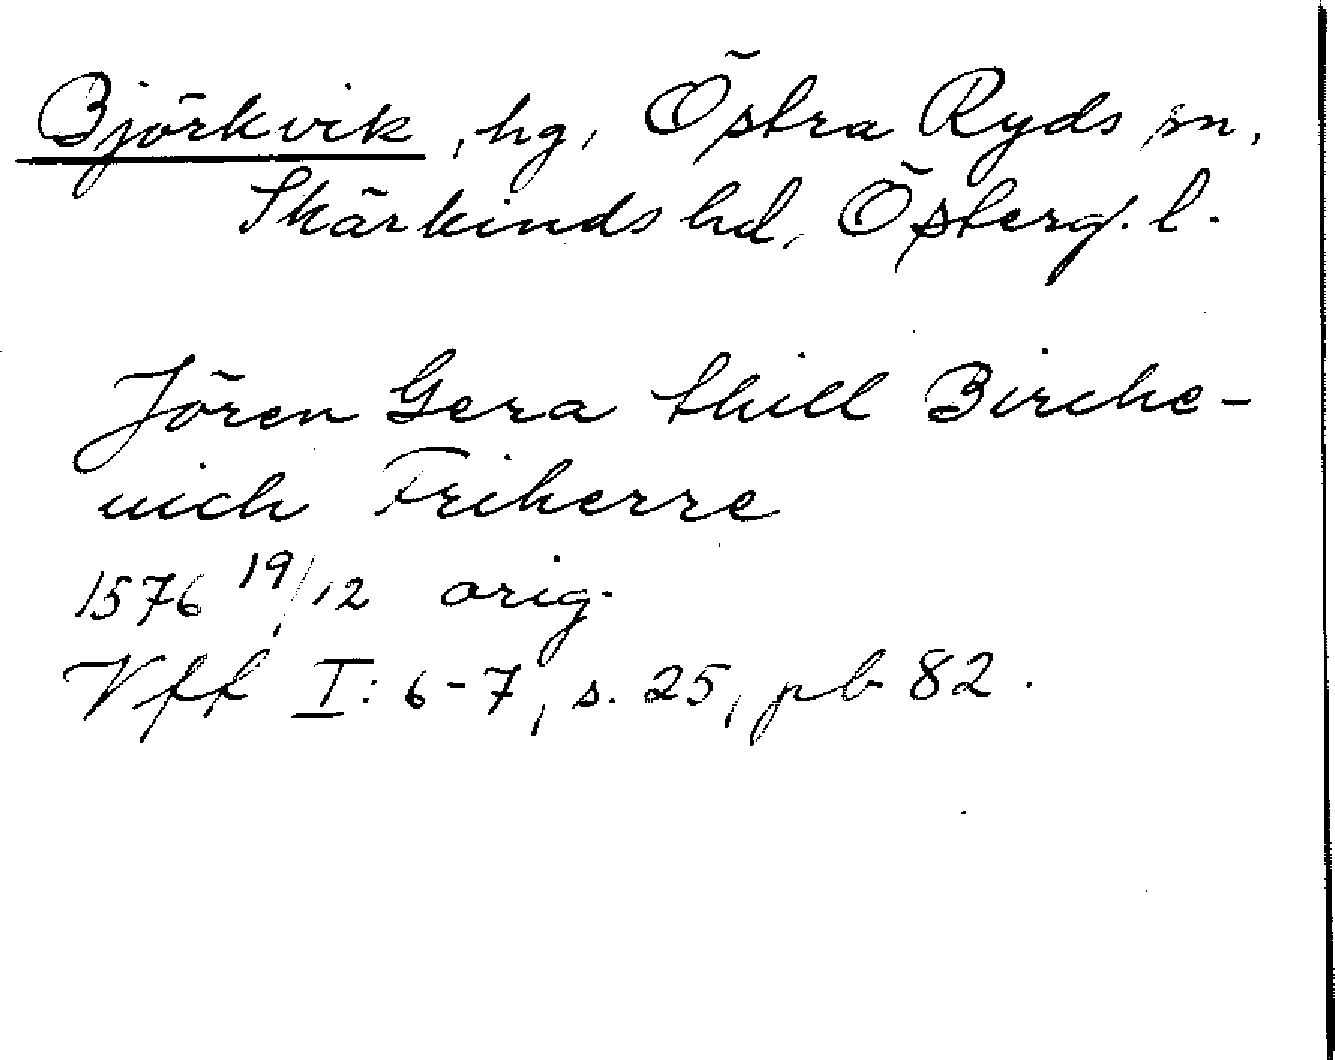 Björkvik, hg, Östra Ryds sn,
Skärkinds hd, Österg. l.
Jören Gera thill Birche-
uich Friherre
1576 19/12 orig.
Vff I: 6-7, s. 25, pb 82.